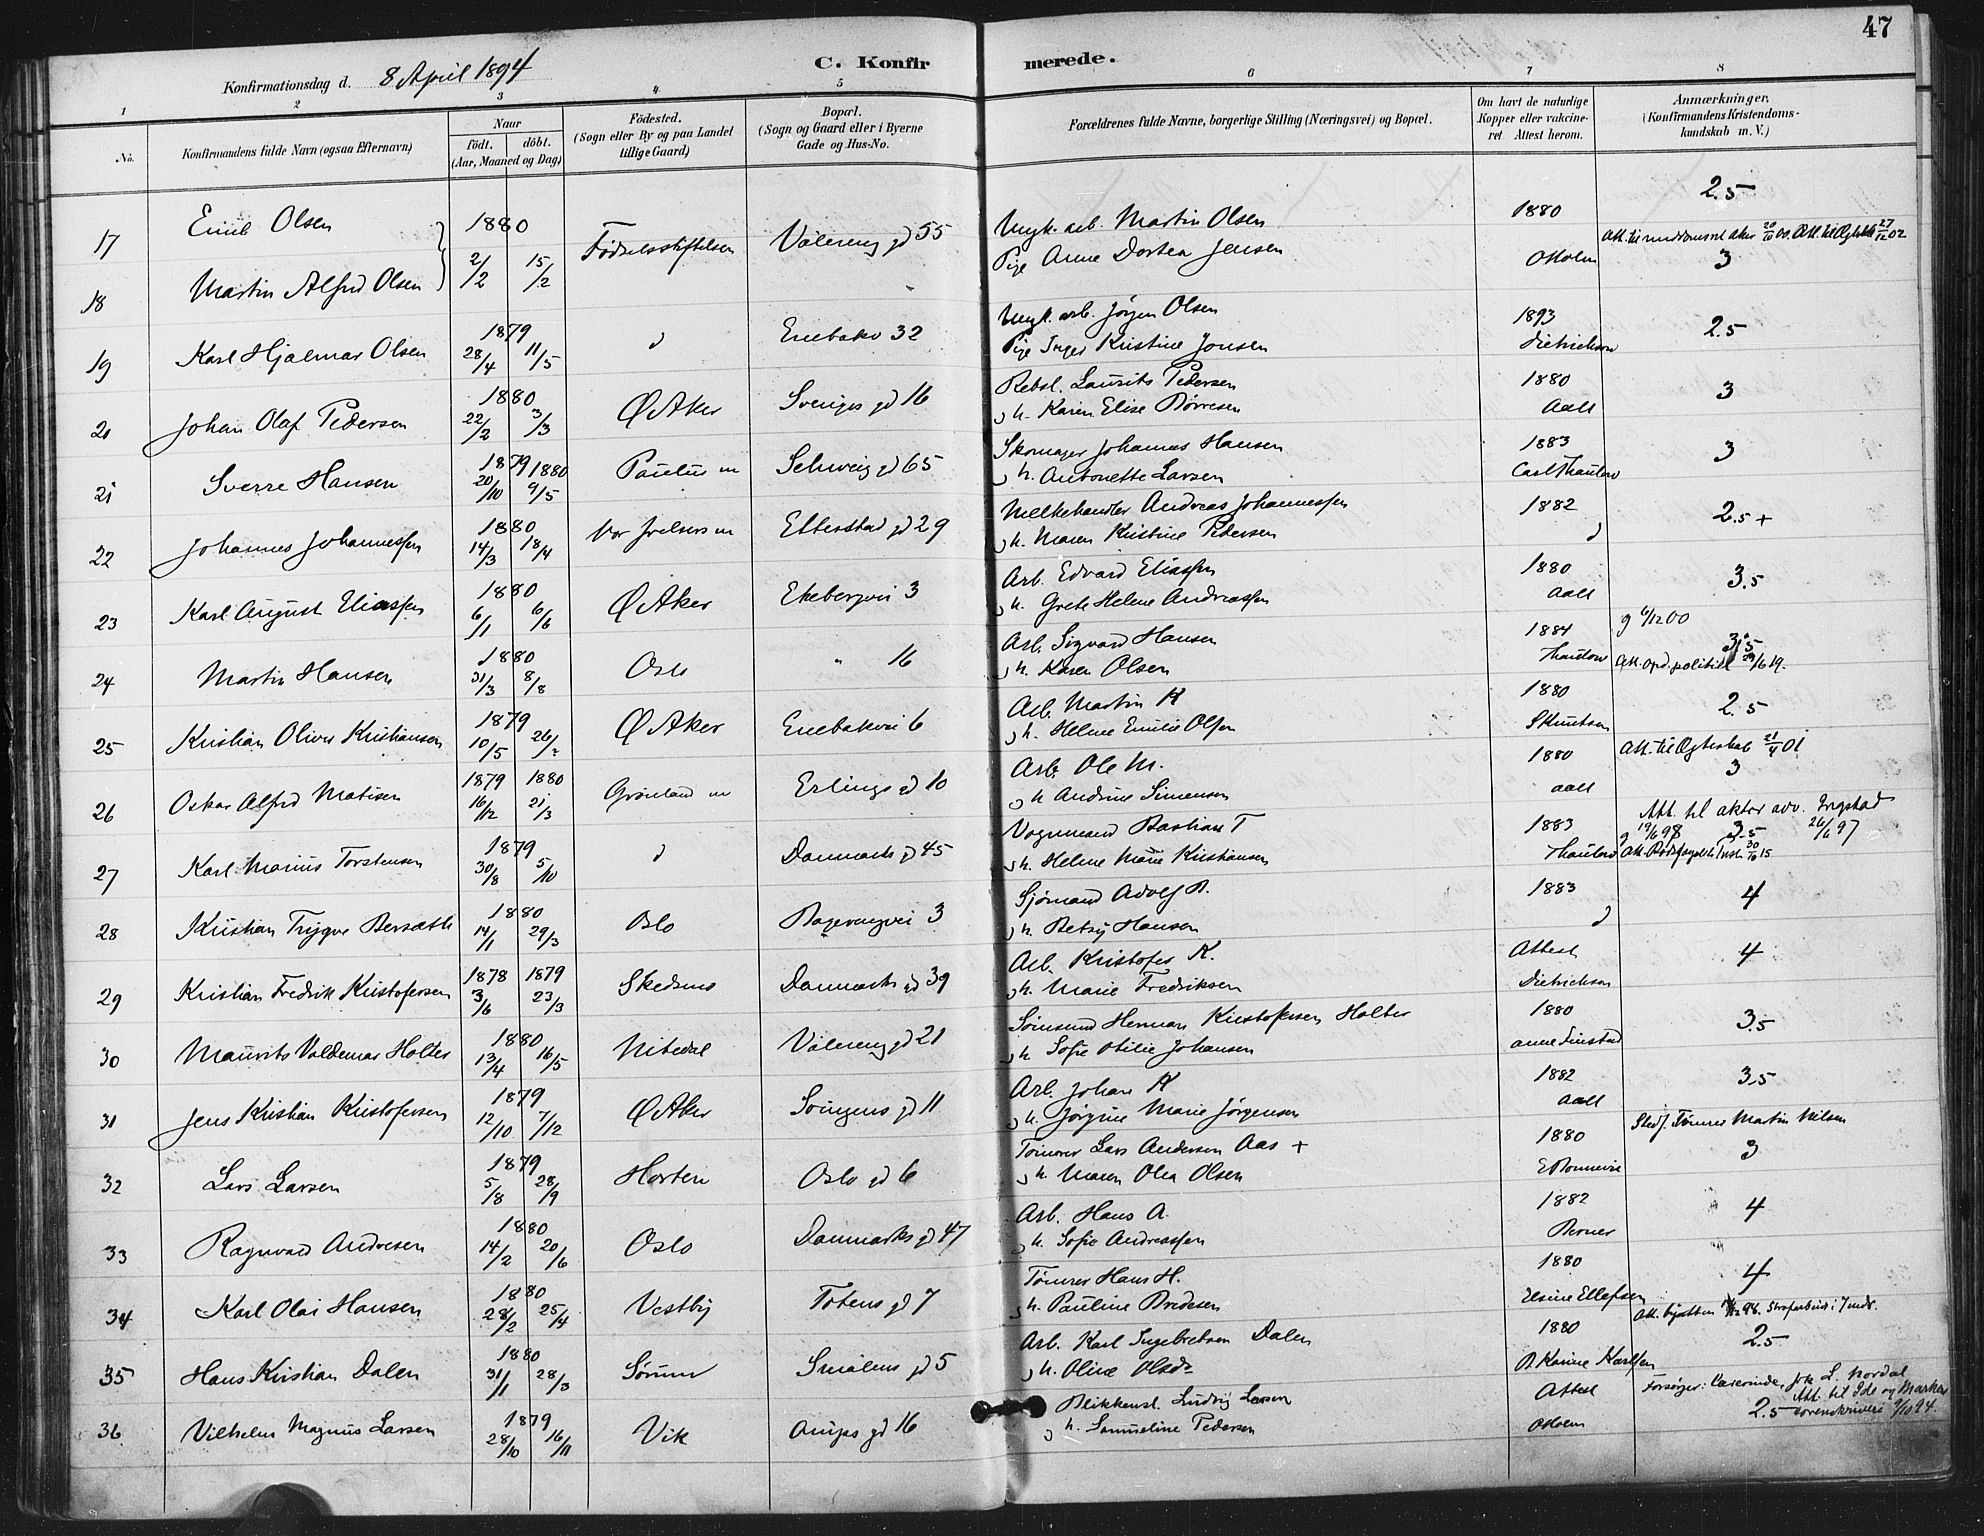 47
Konfirmationsdag d. 8 April 1894
C. Konfirmerede.
1 2 3 4 5 6 7 8
No.
Konfirmandens fulde Navn (ogsaa Efternavn)
Naar
födt. döbt.
(Aar, Maaned og Dag)
Födested.
(Sogn eller By og paa Landet
tillige Gaard)
Bopæl.
(Sogn og Gaard eller i Byerne
Gade og Hus-No.
Forældrenes fulde Navne, borgerlige Stilling (Næringsvei) og Bopæl.
Om havt de naturlige
Kopper eller vakcineret Attest herom.
Anmærkninger,
(Konfirmandens Kristendomskundskab m. V.)
17 Emil Olsen 1880 Födselsstiftelsen Vålereng gd 55 Ungk. arb. Martin Olsen 1880 2.5
18 Martin Alfred Olsen 2/2 15/2 Pige Anne Dortea Jensen O Holm 3
19 Karl Hjalmar Olsen 1879 28/4 11/5 Enebakv 32 Ungk. arb. Jörgen Olsen 1893 2.5
Pige Inger Kristine Jonsen Dietrichson
20 Johan Olaf Pedersen 1880 22/2 3/3 Ø Aker Sveriges gd 16 Rebsl. Laurits Pedersen 1880 3
h. Karen Elise Börresen Aall
21 Sverre Hansen 1879 20/10 1880 9/5 Paulus m Schweig gd 65 Skomager Johannes Hansen 1883 3
h. Antonette Larsen Carl Thaulow
22 Johannes Johannessen 1880 14/3 18/4 Vor Frelsers m Etterstad gd 29 Melkehandler Andreas Johannessen 1882 2.5 +
h. Maren Kristine Pedersen
23 Karl August Eliassen 1880 6/1 6/6 Ø Aker Ekebergvei 3 Arb. Edvard Eliassen 1880 3.5
h. Grete Helene Andreassen Aall
24 Martin Hansen 1880 31/3 8/8 Oslo " 16 Arb. Sigvard Hansen 1884 g 6/12 00
h. Karen Olsen Thaulow 3.5
Att. opd. politik /6 19.
25 Kristian Oliver Kristiansen 1879 10/5 26/? Ø Aker Enebakvei 6 Arb. Martin K 1880 2.5
h. Helene Emilie Olsen S Knutsen
26 Oskar Alfred Matisen 1879 16/12 1880 21/3 Grönland m Erlings gd 10 Arb. Ole M. 1880 Att. til Ægteskab 21/4 01
h Andrine Simensen Aall 3
27 Karl Marius Torstensen 1879 30/8 5/10 Danmarks gd 45 Vognmand Bastian T 1883 Att. til aktor adv. Ingstad
h. Helene Marie Kristiansen Thaulow g 19/6 98 3.5 26/6 97
28 Kristian Trygve Bersæth 1880 14/1 29/3 Oslo 3 Sjömand Adolf B. 1883 4
h. Betsy Hansen
29 Kristian Fredrik Kristofersen 1878 3/6 1879 23/3 Skedsmo Danmarks gd 39 Arb. Kristofer K. Attest 4
h. Marie Fredriksen Dietrichson
30 Maurits Valdemar Holter 1880 13/4 16/5 Nitedal Vålereng gd 21 Herman Kristofersen Holter 1880 3.5
h. Sofie Otilie Johansen
31 Jens Kristian Kristofersen 1879 12/10 7/12 Ø Aker gd 11 Arb. Johan K 1882 3.5
h. Jörgine Marie Jörgensen Aall
32 Lars Larsen 1879 5/8 28/9 Horten Oslo gd 6 Tömrer Lars Andersen Aas + 1880 Stedf. Tömrer Martin Nilsen
h. Maren Olea Olsen 3
33 Ragnvald Andresen 1880 14/2 20/6 Oslo Danmarks gd 47 Arb. Hans A. 1882 4
h. Sofie Andreassen Berner
34 Karl Olai Hansen 1880 28/2 25/4 Vestby Totens gd 7 Tömrer Hans H. 1880 4
h. Pauline Bredesen Elsine Ellefsen
35 Hans Kristian Dalen 1880 31/1 28/3 Sörum Smålens gd 5 Arb. Karl Ingebretsen Dalen 1880 2.5
h. Oline Olsdr B. Karine Karlsen
36 Vilhelm Magnus Larsen 1879 28/10 16/11 Vik Arups gd 16 Blikkensl. Ludvig Larsen Attest
h. Samueline Pedersen O Holm 2.5